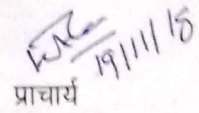 19/11/18
प्राचार्य